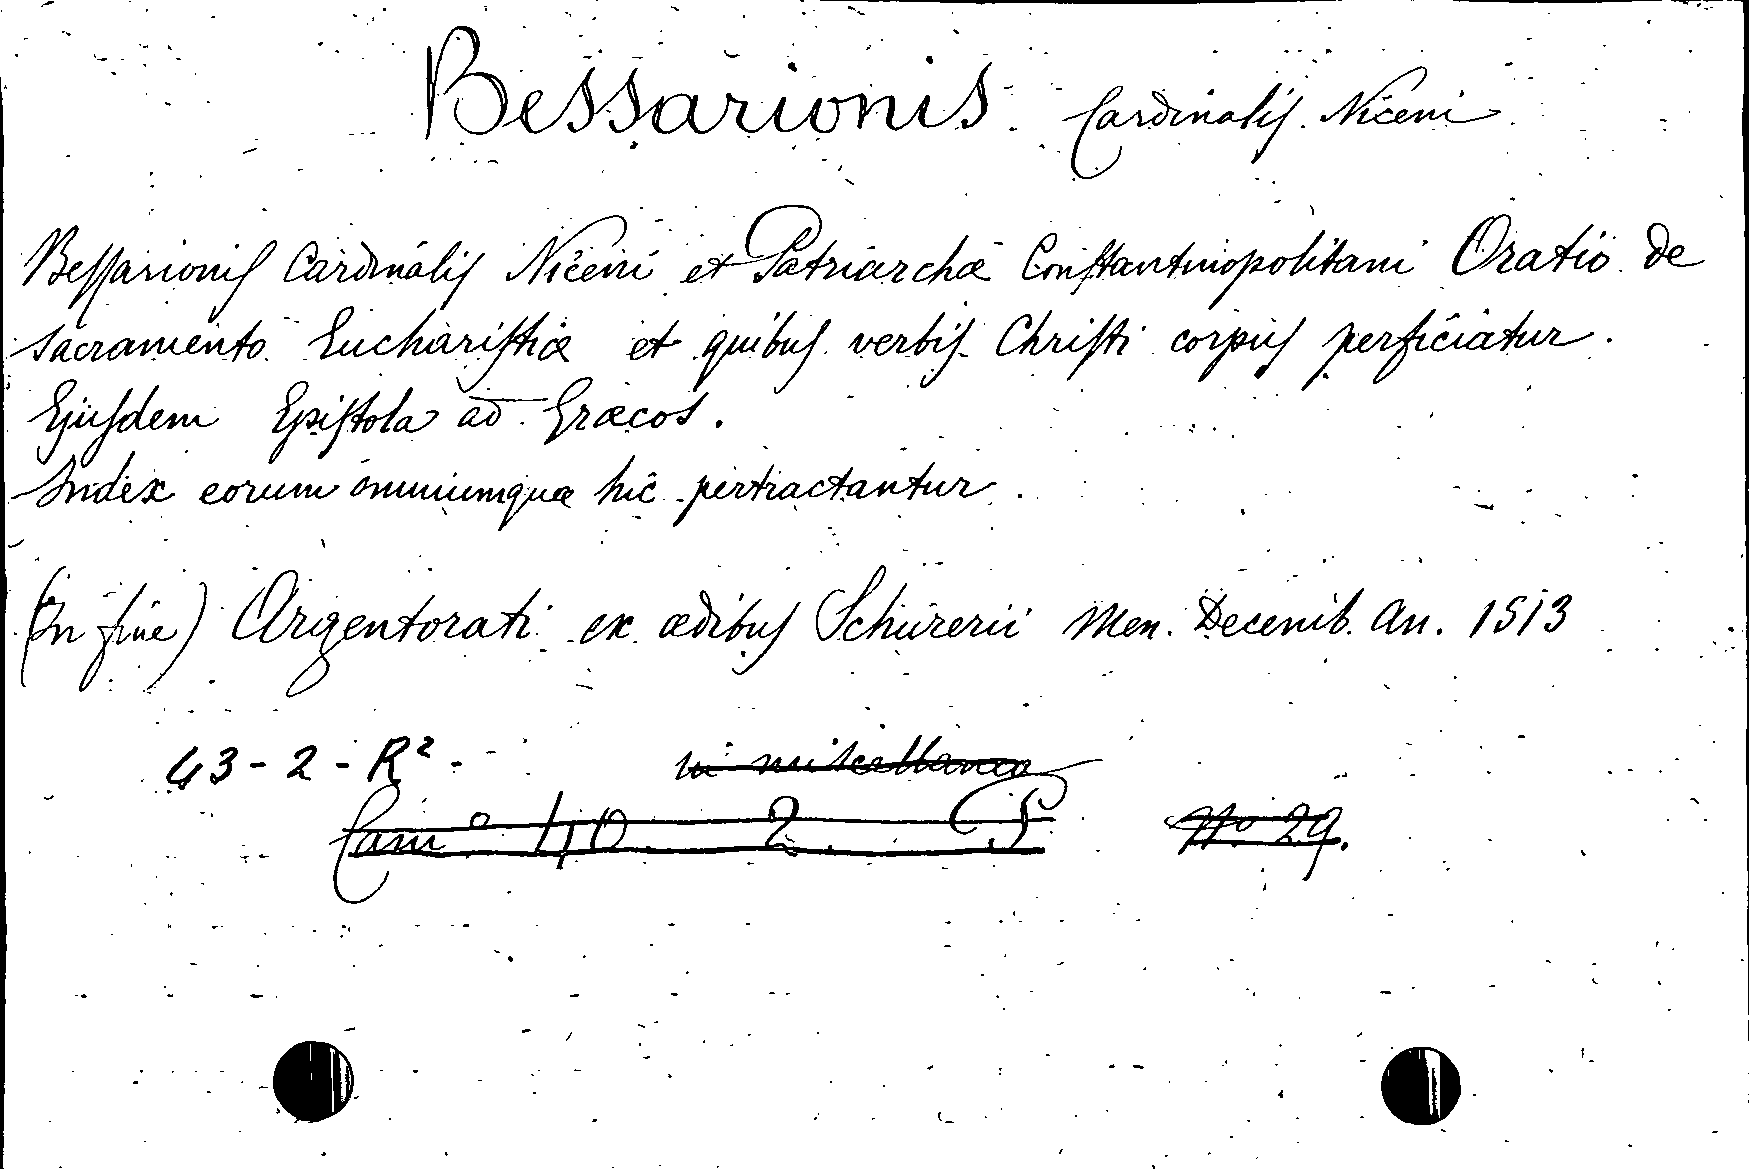 Bessarionis Cardinalis Niceni
Bessarionis Cardinalis Niceni et Patriarchæ Constantinopolitani Oratio de
sacramento Eucharistiæ et quibus verbis Christi corpus perficiatur.
Ejusdem Epistola ad Græcos.
Index eorum omniumquæ hic pertractantur.
(In fine) Argentorati ex ædibus Schürerii Men. Decemb. An. 1513
43-2-R²- in miscellanea
Cam° 40 2 Nº 29.